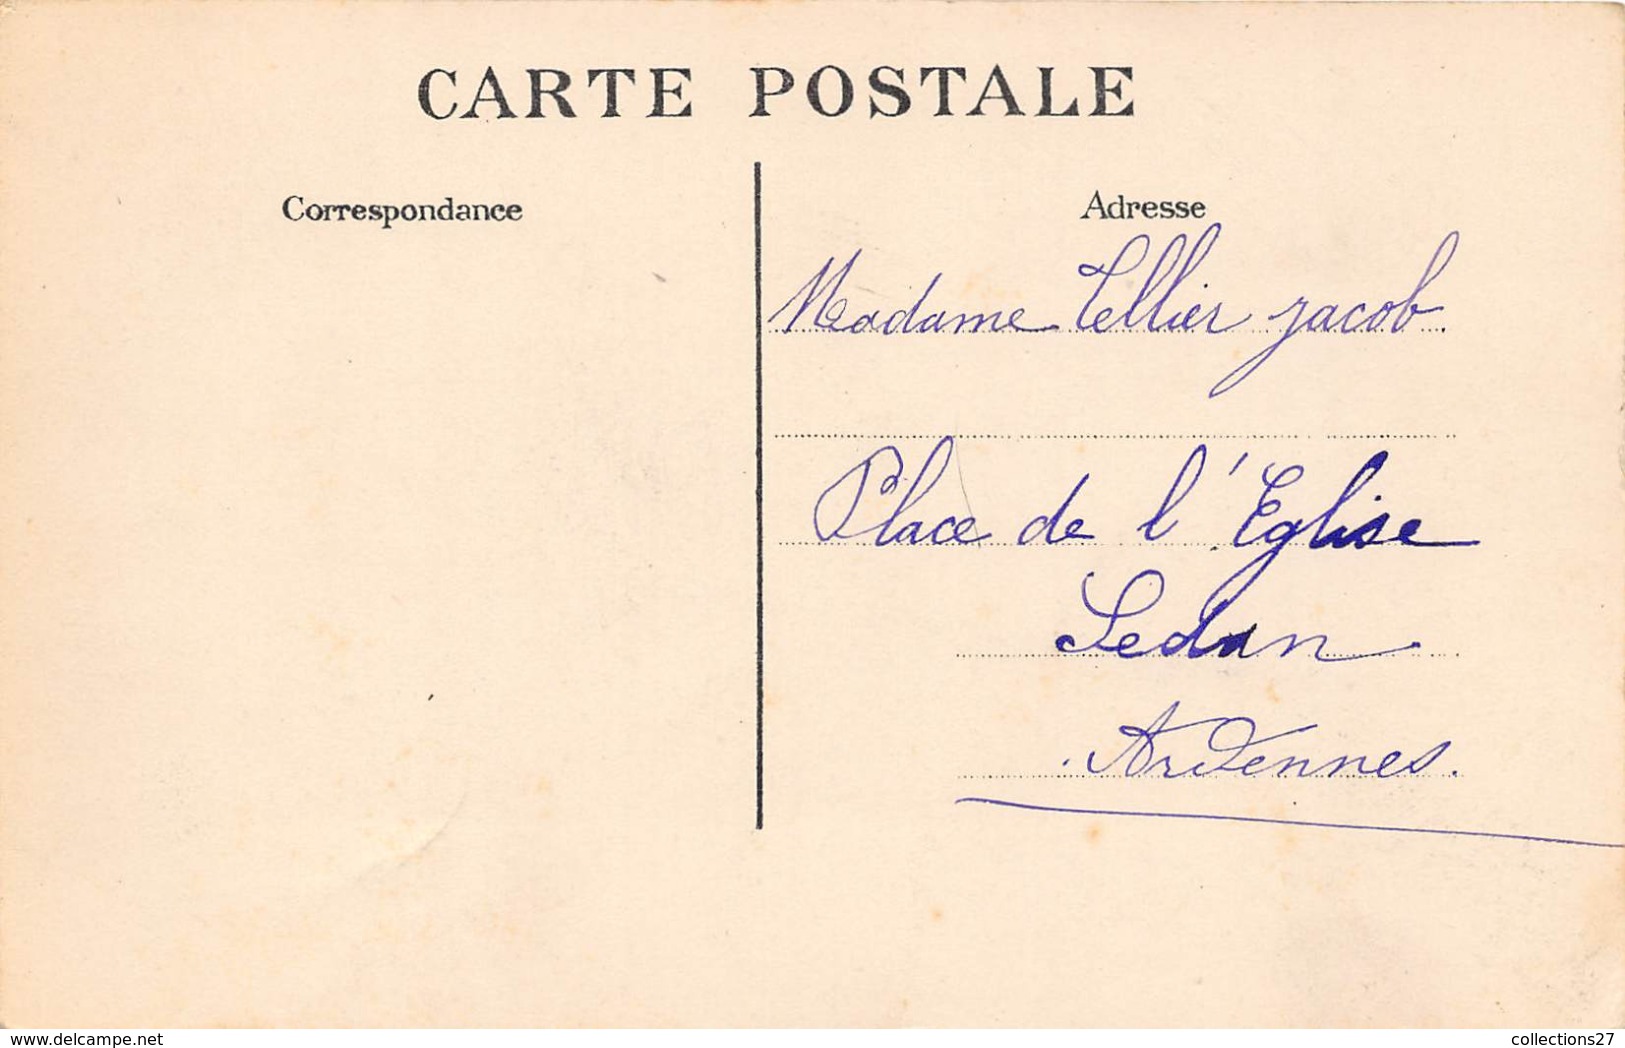 CARTE POSTALE
Correspondance
Adresse
Madame Tellier Jacob
Place de l'Eglise
Sedan
Ardennes.
delcampe.net
collections27